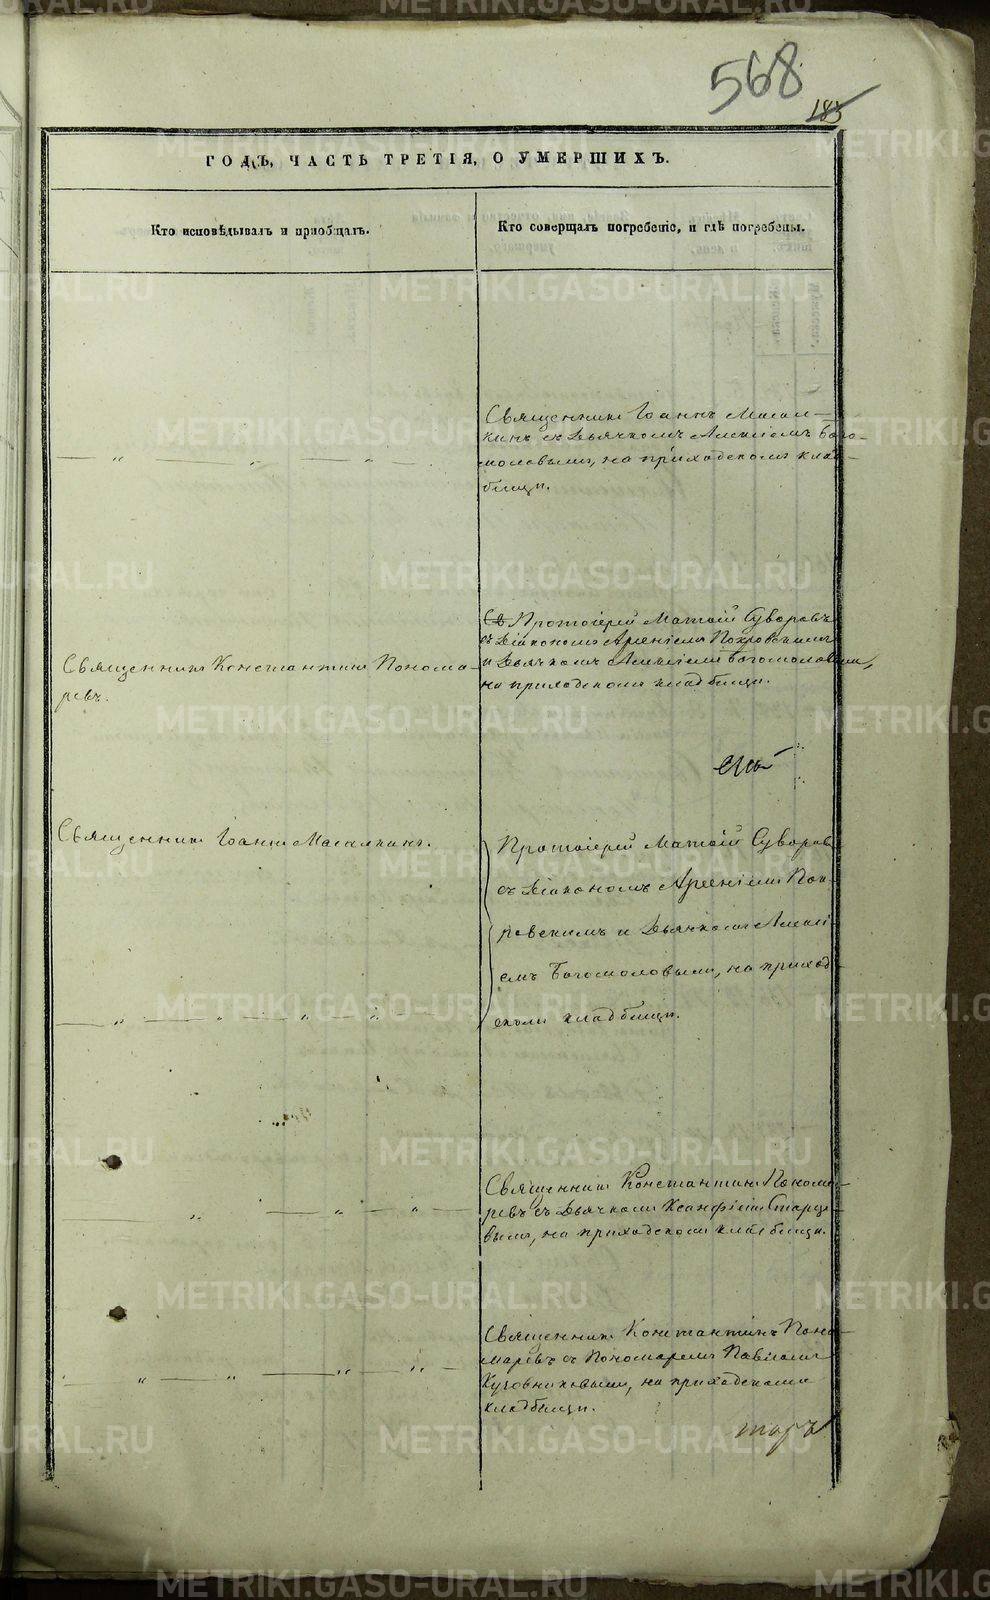 568
183
ГОДЪ, ЧАСТЬ ТРЕТІЯ, О УМЕРШИХЪ.
Кто исповѣдывалъ и пріобщалъ.
Кто совершалъ погребеніе, и гдѣ погребены.
Священникъ Іоаннъ Масал-
кинъ съ Дьячкомъ Алексіемъ Бого-
моловымъ, на приходскомъ клад-
бищи.
Священникъ Константинъ Понома-
ревъ.
Св Протоіерей Матѳій Суворовъ
съ Діакономъ Арсеніемъ Покровскимъ
и Дьячкомъ Алексіемъ Богомоловымъ,
на приходскомъ кладбищи.
Священникъ Іоаннъ Масалкинъ.
Протоіерей Матѳій Суворовъ
съ Діакономъ Арсеніемъ Пок-
ровскимъ и Дьячкомъ Алексі-
емъ Богомоловымъ, на приход-
скомъ кладбищи.
Священникъ Константинъ Понома-
ревъ съ Дьячкомъ Ксанфіемъ Старце-
вымъ, на приходскомъ кладбищи.
Священникъ Константинъ Поно-
маревъ съ Пономаремъ Павломъ
Кузовниковымъ, на приходскомъ
кладбищи.
METRIKI.GASO-URAL.RU